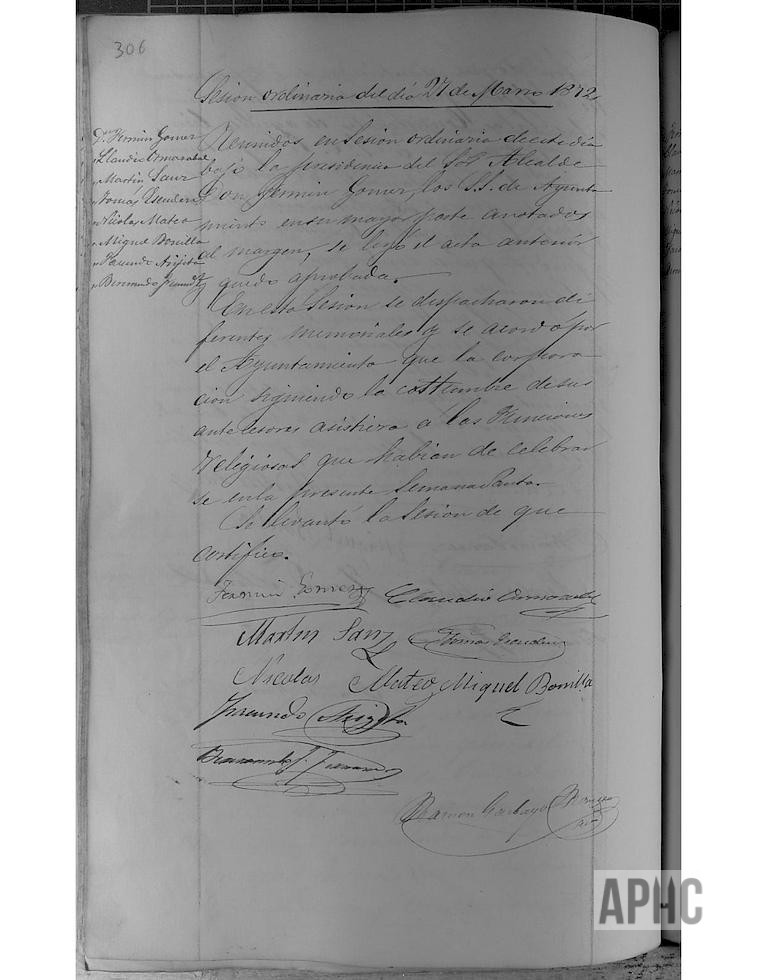 306
Sesion ordinaria del dia 27 de Marzo 1872
Dn Fermin Gomez
" Claudio Ormazabal
" Martin Sanz
" Tomas Escudero
" Nicolas Mateo
" Miguel Bonilla
" Facundo
" Bermundo
Reunidos en Sesion ordinaria de este dia
bajo la presidencia del Sor Alcalde
Don Fermin Gomez, los S.S. de Ayunta
miento en su mayor parte anotados
al margen, se leyó el acta anterior
y quedó aprobada.
En esta Sesion se despacharon di
ferentes memoriales y se acordo por
el Ayuntamiento que la corpora
cion siguiendo la costtumbre de sus
antecesores asistiera á las Funciones
Religiosas que habian de celebrar
se en la presente Semana Santa.
Se levantó la Sesion de que
certifico.
Fermin Gomez Claudio Ormazabal
Martin Sanz Tomas Escudero
Nicolas Mateo Miguel Bonilla
Facundo
Ramon Garbayo
APHC